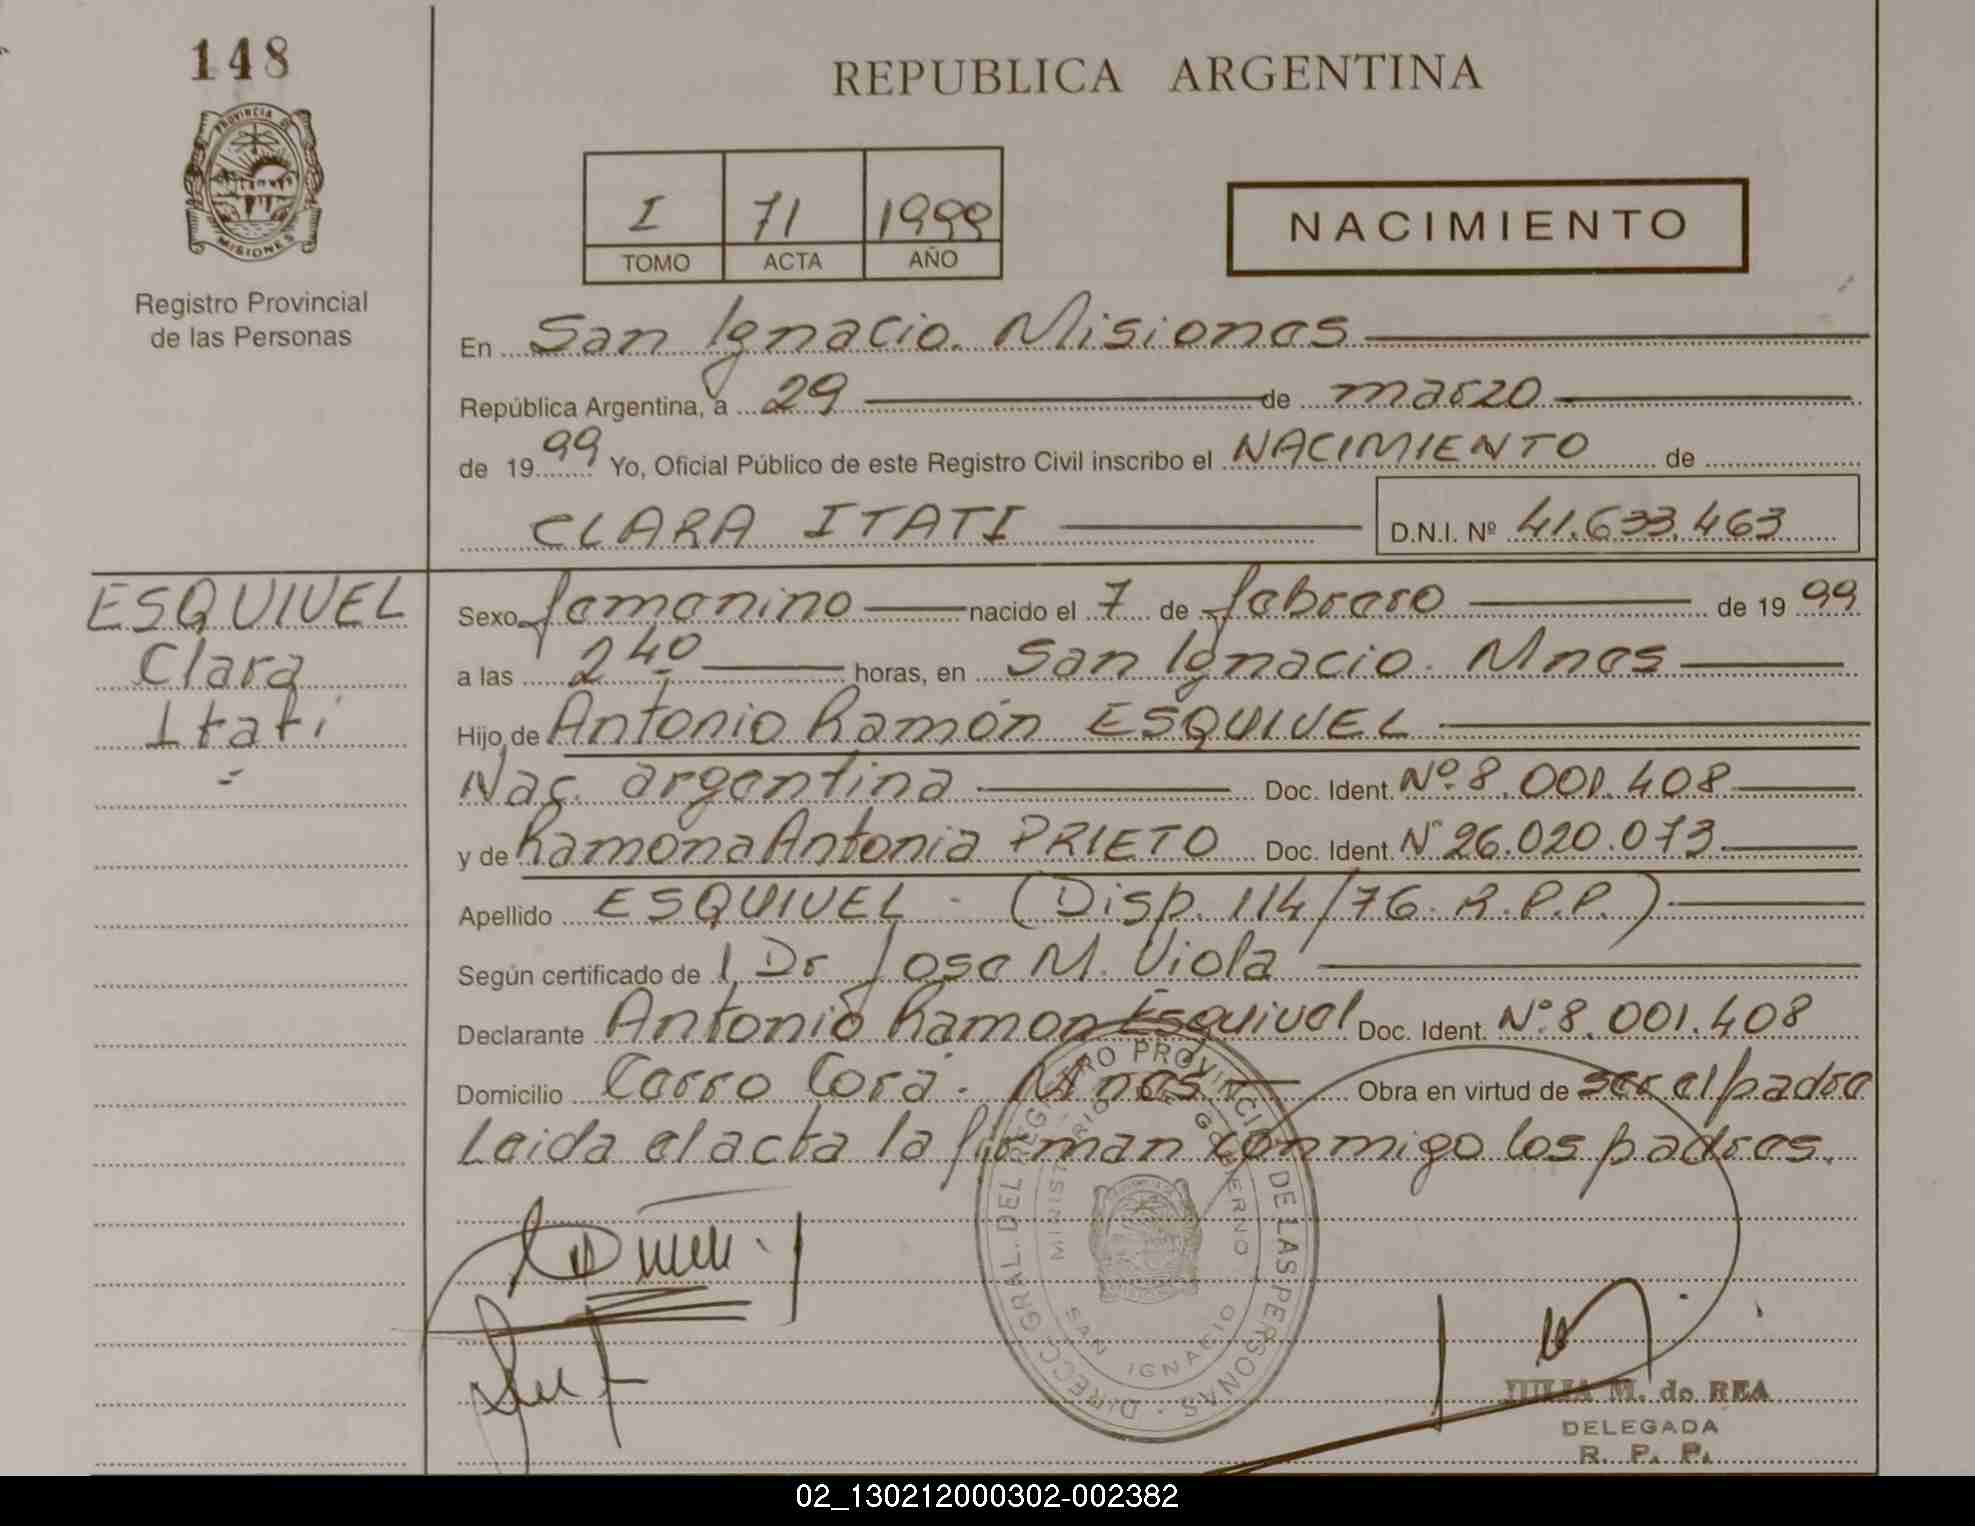 148
PROVINCIA DE
MISIONES
Registro Provincial
de las Personas
REPUBLICA ARGENTINA
I 71 1999
TOMO ACTA AÑO
NACIMIENTO
En San Ignacio. Misiones
República Argentina, a 29 de marzo
de 1999 Yo, Oficial Público de este Registro Civil inscribo el NACIMIENTO de
CLARA ITATI D.N.I. Nº 41.633.463
ESQUIVEL
Clara
Itatí
Sexo femenino nacido el 7 de febrero de 1999
a las 2 40 horas, en San Ignacio. Mnes
Hijo de Antonio Ramón ESQUIVEL
Nac. argentina Doc. Ident. Nº 8.001.408
y de Ramona Antonia PRIETO Doc. Ident. Nº 26.020.073
Apellido ESQUIVEL - (Disp. 114/76. R.P.P.)
Según certificado de l Dr Jose M. Viola
Declarante Antonio Ramon Esquivel Doc. Ident. Nº 8.001.408
Domicilio Cerro Corá. Mnes Obra en virtud de ser el padre
Leida el acta la firman conmigo los padres.
DIRECC. GRAL. DEL REGISTRO PROVINCIAL DE LAS PERSONAS
MINISTERIO DE GOBIERNO
SAN IGNACIO
JULIA M. de REA
DELEGADA
R. P. P.
02_130212000302-002382